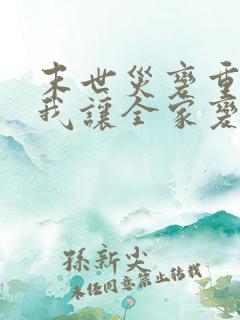 末世災變重
我讓全家變
孫新尖
未經同意禁止轉載